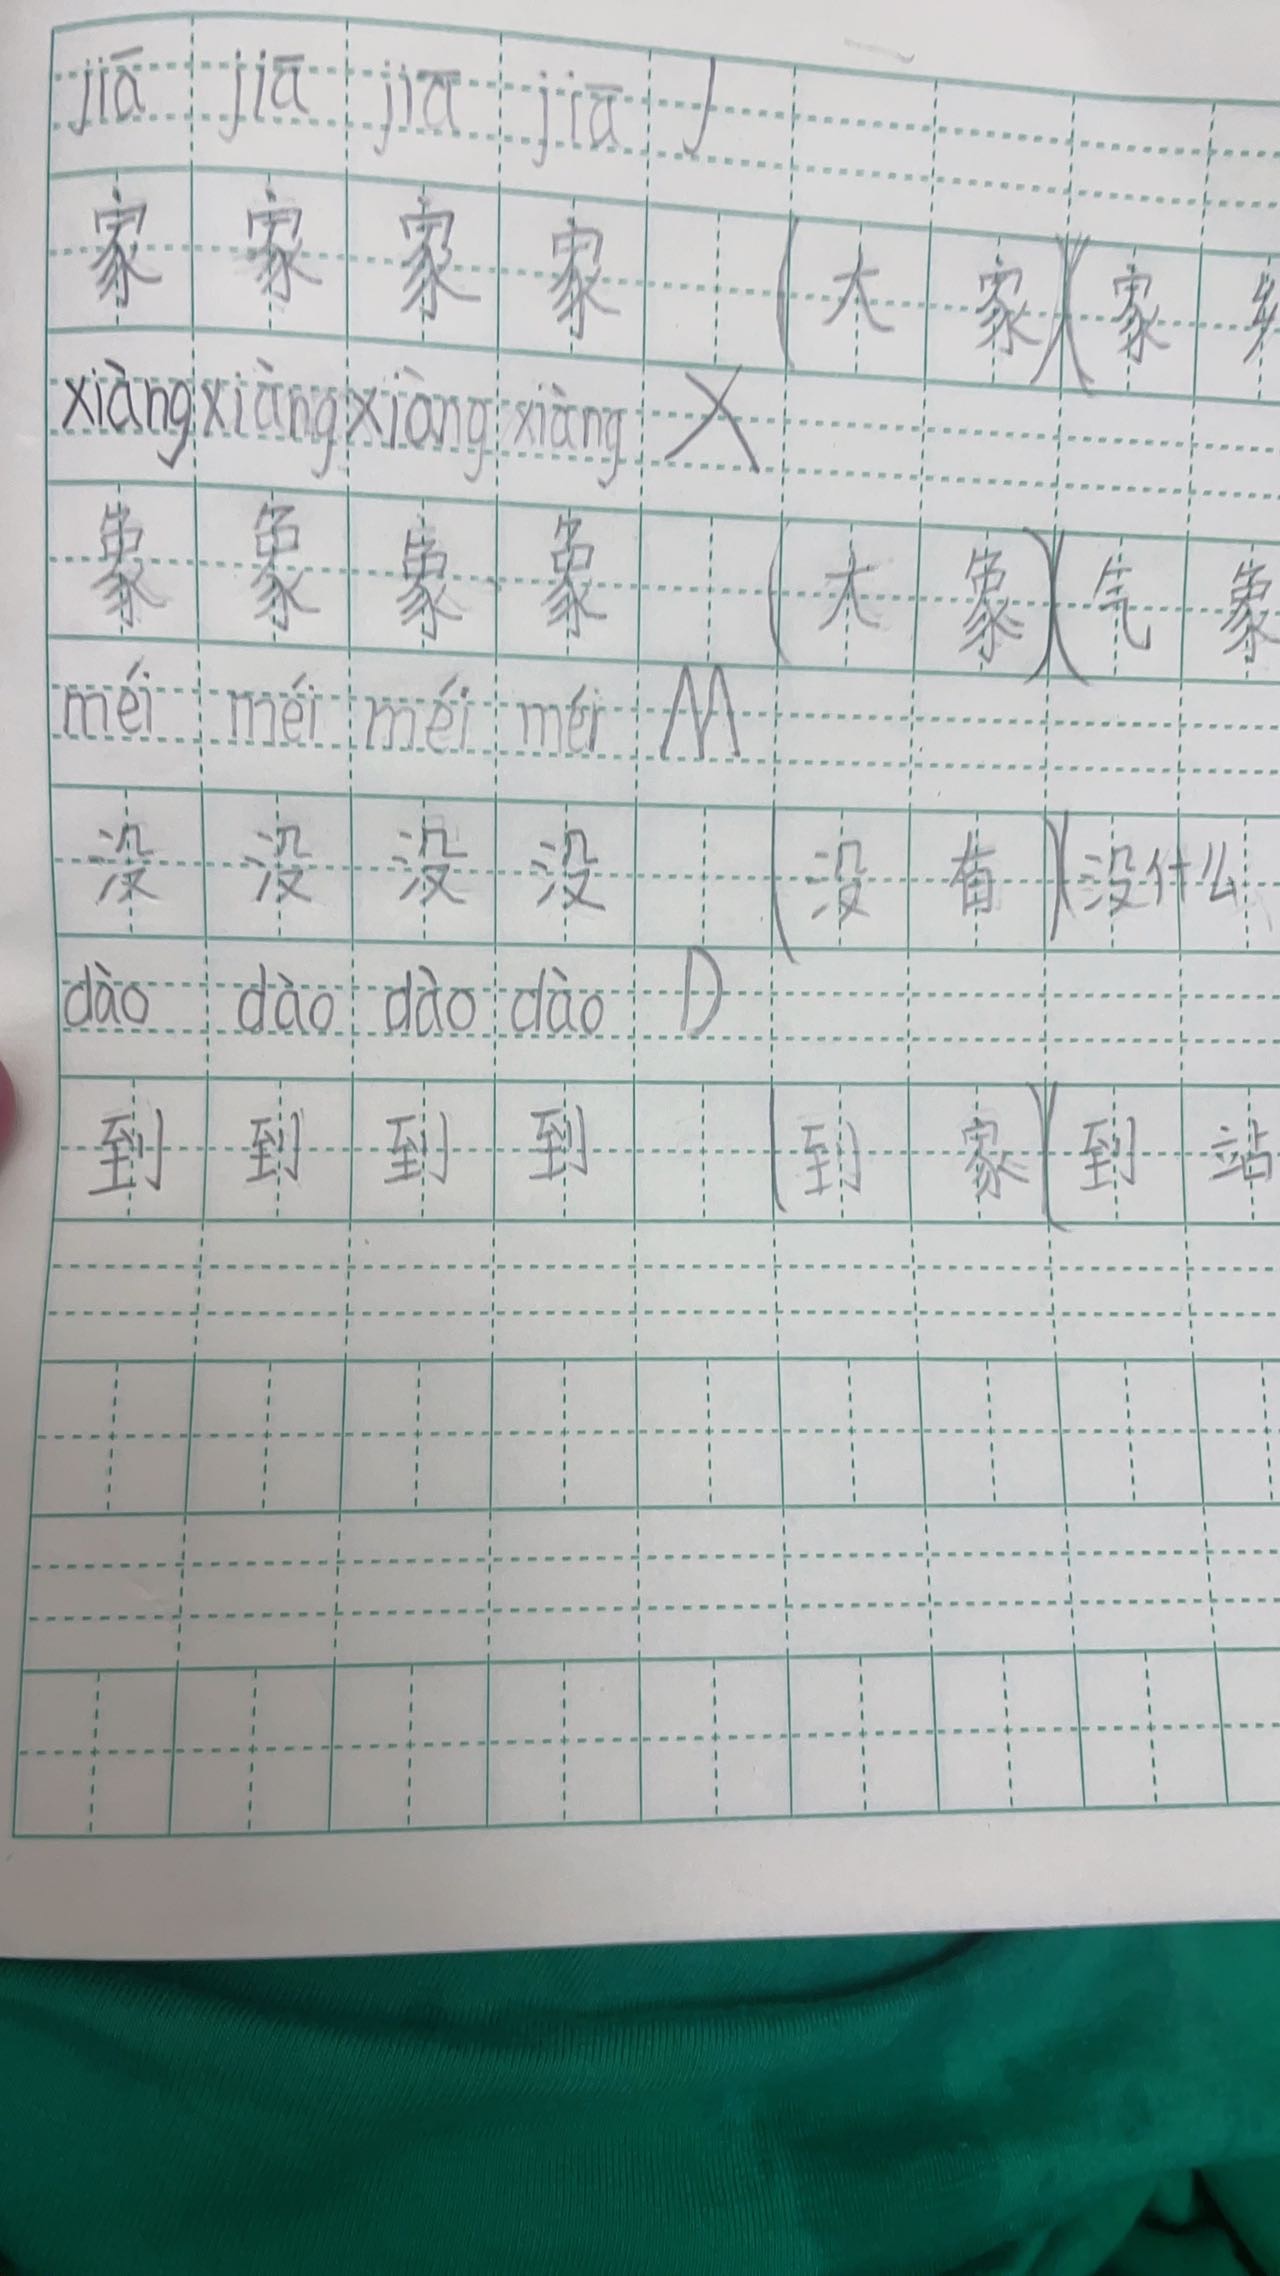 jiā jiā jiā jiā J
家 家 家 家 (大 家)(家
xiàng xiàng xiàng xiàng X
象 象 象 象 (大 象)(气 象
méi méi méi méi M
没 没 没 没 (没 有)(没什么
dào dào dào dào D
到 到 到 到 (到 家)(到 站